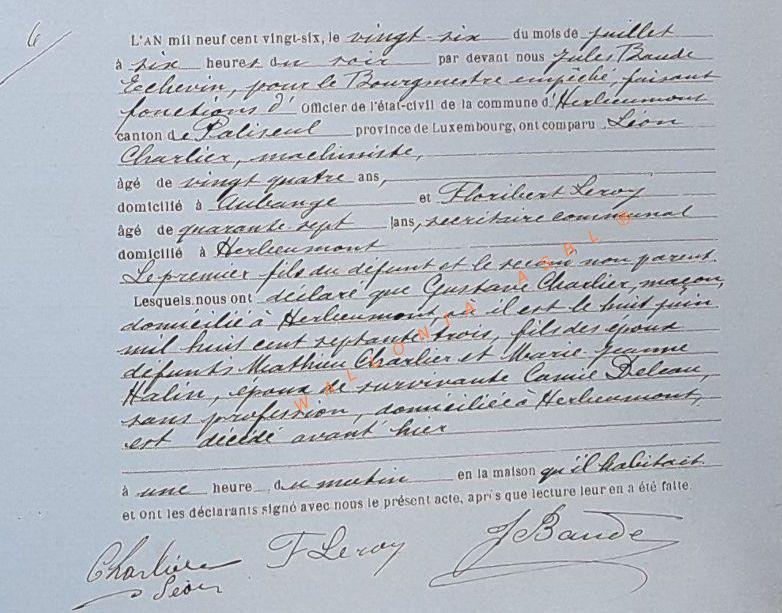 6
L'AN mil neuf cent vingt-six, le vingt-six du mois de juillet
à six heures du soir par devant nous Jules Baude
Echevin, pour le Bourgmestre empêché, faisant
fonctions d' Officier de l'état-civil de la commune d'Herbeumont
canton de Paliseul province de Luxembourg, ont comparu Léon
Charlier, machiniste,
âgé de vingt quatre ans,
domicilié à Aubange et Floribert Leroy
âgé de quarante sept ans, secrétaire communal
domicilié à Herbeumont
Le premier fils du défunt et le second non parent.
Lesquels nous ont déclaré que Gustave Charlier, maçon,
domicilié à Herbeumont, où il est né le huit juin
mil huit cent septante trois, fils des époux
défunts Mathieu Charlier et Marie Jeanne
Halin, époux de survivante Camie Deleau,
sans profession, domiciliée à Herbeumont,
est décédé avant hier
à une heure du matin en la maison qu'il habitait.
et ont les déclarants signé avec nous le présent acte, après que lecture leur en a été faite.
Charlier F Leroy J Baude
Léon
WALLONIA ASBL ©